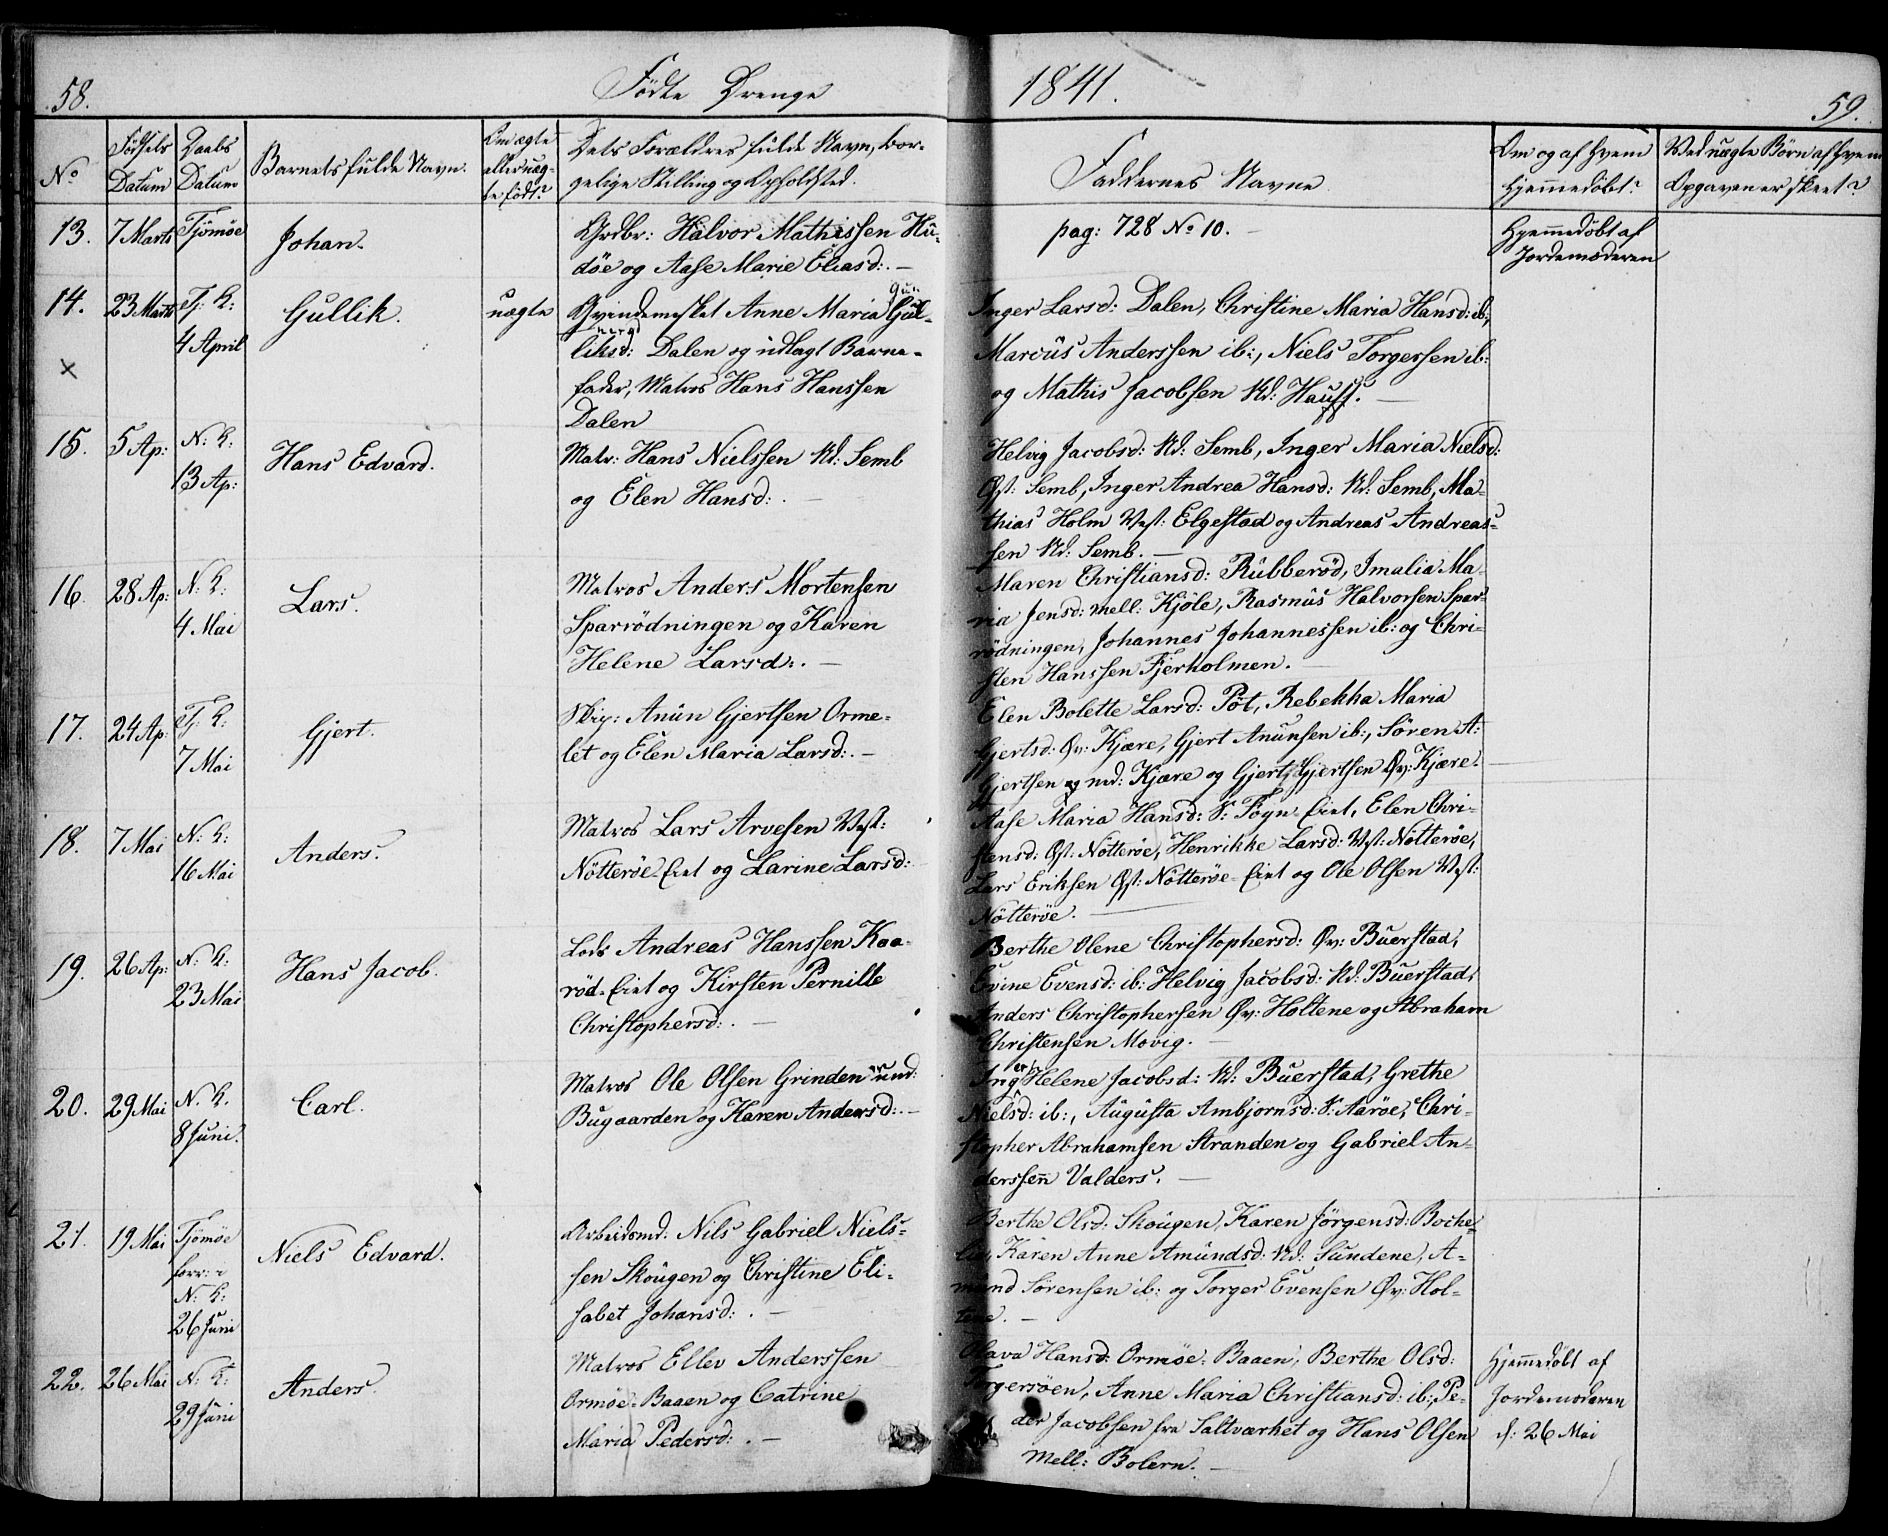 58.
Fødte Drenge
1841.
59.
No
Fødsels Datum
Daabs Datum
Barnets fulde Navn.
Om ægte eller uæg-te født?
Dets Forældres fulde Navn, bor-
gelige Stilling og Opholdsted.
Faddernes Navne
Om og af hvem Hjemmedøbt?
Ved uægte Børn af hvem Opgaven er skeet?
13. 7 Marts Tjömöe Johan.
Grdbr: Halvor Mathissen Hu-
döe og Aase Marie Eliasd:. —
pag: 728 No 10. —
Hjemmedøbt af
Jordemoderen
14. 23 Marts Tj: K: 4 April Gullik. uægte
×
Qvindemsket Anne Maria Gul-
gun
nerd
liksd: Dalen og udlagt Barne-
fader, Matros Hans Hanssen
Dalen
Inger Larsd: Dalen, Christine Maria Hansd: ib:,
Marcus Anderssen ib:, Niels Torgersen ib:
og Mathis Jacobsen Nd: Hauff. —
15. 5 Ap: N: K: 13 Ap: Hans Edvard.
Matr: Hans Nielssen Nd: Semb
og Elen Hansd:. —
Helvig Jacobsd: Nd: Semb, Inger Maria Nielsd:
Øst: Semb, Inger Andrea Hansd: Nd: Semb, Ma-
thias Holm Vest: Elgestad og Andreas Andreas-
sen Nd: Semb. —
16. 28 Ap: N: K: 4 Mai Lars.
Matros Anders Mortensen
Sparrödningen og Karen
Helene Larsd:. —
Maren Christiansd: Rubberöd, Imalia Ma-
ria Jensd: mell: Kjöle, Rasmus Halvorsen Spar-
rödningen, Johannes Johannessen ib: og Chri-
sten Hanssen Fjerholmen. —
17. 24 Ap: Tj: K: 7 Mai Gjert.
Skip: Anun Gjertsen Orme-
let og Elen Maria Larsd:. —
Elen Bolette Larsd: Pöt, Rebekka Maria
Gjertsd: Øv: Kjære, Gjert Anunsen ib:, Sören A:
Gjertsen ned: Kjære og Gjert Gjertsen Øv: Kjære.
18. 7 Mai N: K: 16 Mai Anders.
Matros Lars Arvesen Vest:
Nötteröe Eiet og Larine Larsd:
Aase Maria Hansd: S: Föyn Eiet, Elen Chri-
stensd: Øst: Nötteröe, Henrikke Larsd: Vest: Nötteröe,
Lars Eriksen Øst: Nötteröe Eiet og Ole Olsen Vest:
Nötteröe. —
19. 26 Ap: N: K: 23 Mai Hans Jacob.
Lods Andreas Hanssen Kaa-
röd Eiet og Kirsten Pernille
Christophersd:. —
Berthe Olene Christophersd: Øv: Buerstad,
Evine Evensd: ib: Helvig Jacobsd: Nd: Buerstad,
Anders Christophersen Øv: Holtene og Abraham
Christensen Movig. —
20. 29 Mai N. K. 8 Juni. Carl.
Matros Ole Olsen Grinden und:
Bugaarden og Karen Andersd:. —
Inger Helene Jacobsd: Nd: Buerstad, Grethe
Nielsd: ib:, Augusta Ambjornsd: S: Aaröe, Chri-
stopher Abrahamsen Stranden og Gabriel An-
derssen Valders. —
21. 19 Mai Tjömöe forr: i N: K: 26 Juni Niels Edvard.
Arbeidsmd: Nils Gabriel Niels-
sen Skougen og Christine Eli-
sabet Johansd:. —
Berthe Olsd: Skougen, Karen Jörgensd: Bocke-
lie, Karen Anne Amundsd: Nd: Sundene, A-
mund Sörensen ib: og Torger Evensen Øv: Hol-
tene. —
22. 26 Mai N: K: 29 Juni Anders.
Matros Ellev Anderssen
Ormöe-Baaen og Catrine
Maria Pedersd:. —
Olava Hansd: Ormöe-Baaen, Berthe Olsd:
Torgersöen, Anne Maria Christiansd: ib:, Pe-
der Jacobsen fra Saltværket og Hans Olsen
Mell: Bolern. —
Hjemmedøbt af
Jordemoderen
d: 26 Mai